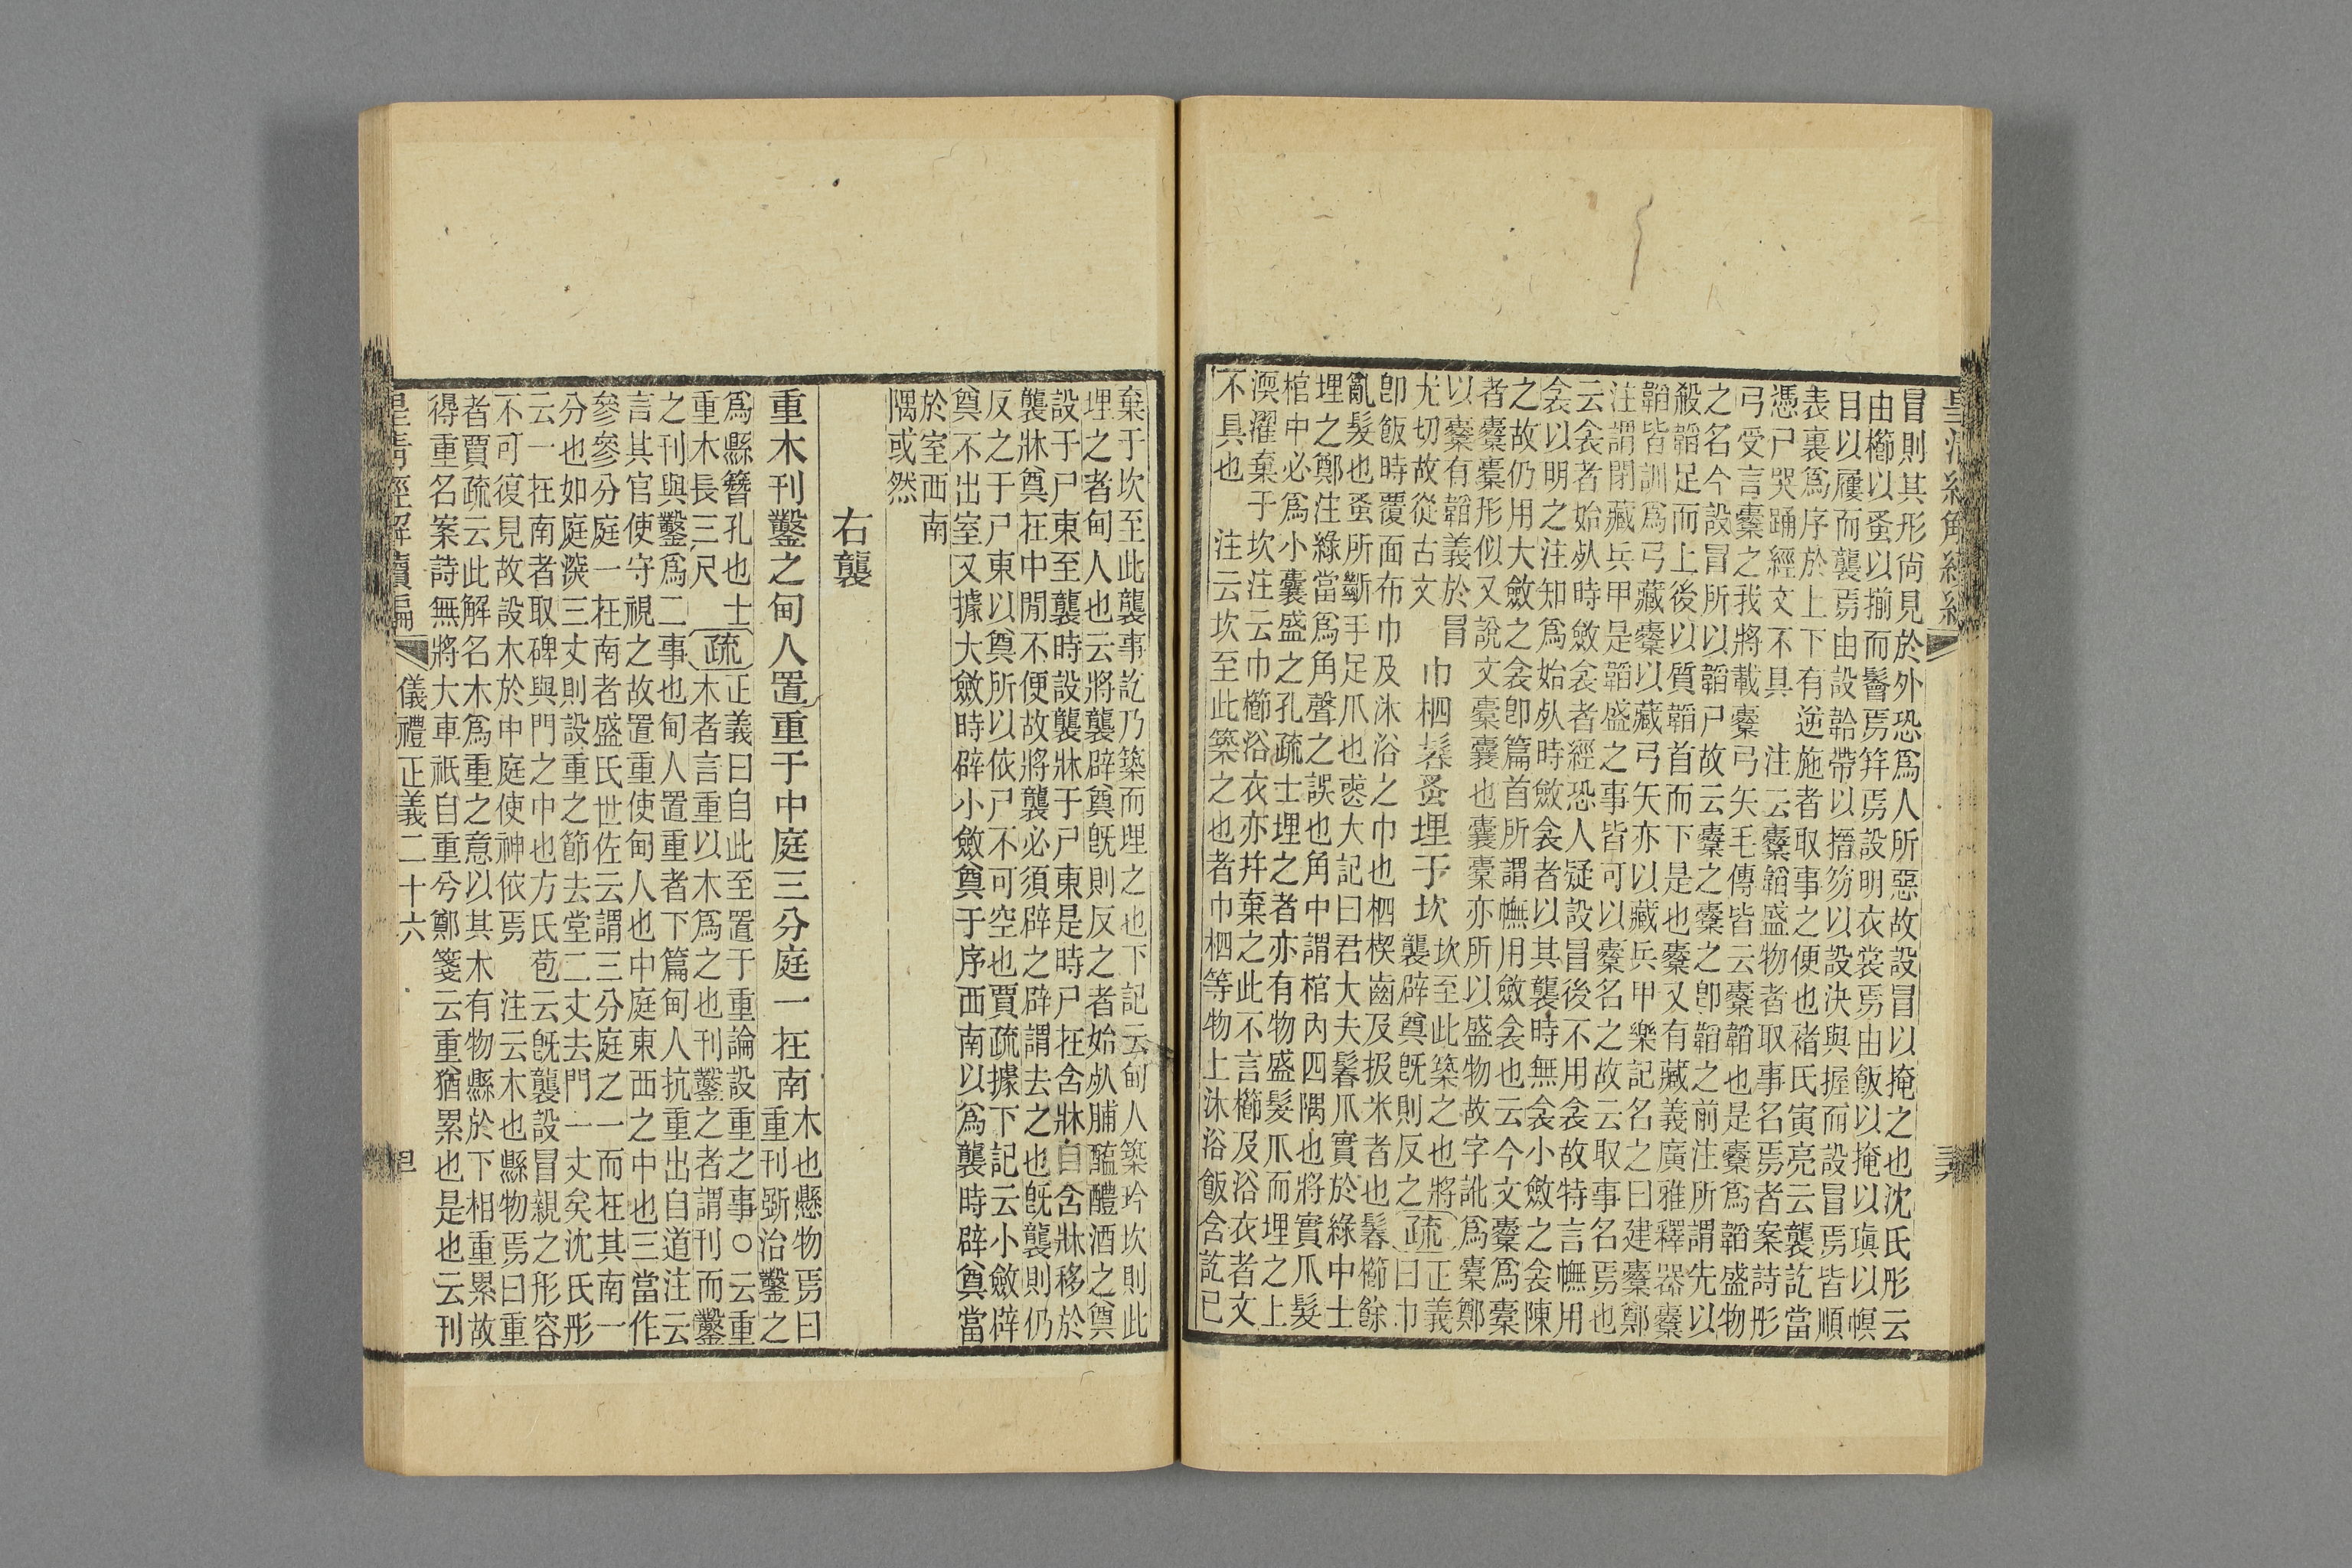 冒則其形尙見於外恐爲人所惡故設冒以掩之也沈氏彤云
由櫛以蚤以揃而鬠焉笄焉設明衣裳焉由飯以掩以瑱以幎
目以屨而襲焉由設韐帶以搢笏以設決與握而設冒焉皆順
表裏爲序於上下有逆施者取事之便也褚氏寅亮云襲訖當
憑尸哭踊經文不具　注云櫜韜盛物者取事名焉者案詩彤
弓受言櫜之我將載櫜弓矢毛傳皆云櫜韜也是櫜爲韜盛物
之名今設冒所以韜尸故云櫜之櫜之卽韜之前注所謂先以
殺韜足而上後以質韜首而下是也櫜又有藏義廣雅釋器櫜
韜皆訓爲弓藏櫜以藏弓矢亦以藏兵甲樂記名之曰建櫜鄭
注謂閉藏兵甲是韜盛之事皆可以櫜名之故云取事名焉也
云衾者始死時斂衾者經恐人疑設冒後不用衾故特言幠用
衾以明之注知爲始死時斂衾者以其襲時無衾小斂之衾陳
之故仍用大斂之衾卽篇首所謂幠用斂衾也云今文櫜爲櫜
者櫜櫜形似又說文櫜囊也囊櫜亦所以盛物故字訛爲櫜鄭
以櫜有韜義於冒
尤切故從古文
巾柶鬊蚤埋于坎
坎至此築之也將
襲辟奠旣則反之
疏
正義
曰巾
卽飯時覆面布巾及沐浴之巾也柶楔齒及扱米者也鬊櫛餘
亂髮也蚤所斷手足爪也喪大記曰君大夫鬊爪實於綠中士
埋之鄭注綠當爲角聲之誤也角中謂棺內四隅也將實爪髮
棺中必爲小囊盛之孔疏士埋之者亦有物盛髮爪而埋之上
渜濯棄于坎注云巾櫛浴衣亦幷棄之此不言櫛及浴衣者文
不具也　注云坎至此築之也者巾柶等物上沐浴飯含訖已
棄于坎至此襲事訖乃築而埋之也下記云甸人築坅坎則此
埋之者甸人也云將襲辟奠旣則反之者始死脯醢醴酒之奠
設于尸東至襲時設襲牀于尸東是時尸在含牀自含牀移於
襲牀奠在中閒不便故將襲必須辟之辟謂去之也旣襲則仍
反之于尸東以奠所以依尸不可空也賈疏據下記云小斂辟
奠不出室又據大斂時辟小斂奠于序西南以爲襲時辟奠當
於室西南
隅或然
右襲
重木刊鑿之甸人置重于中庭三分庭一在南
木也懸物焉曰
重刊斲治鑿之
爲縣簪孔也士
重木長三尺
疏
正義曰自此至置于重論設重之事○云重
木者言重以木爲之也刊鑿之者謂刊而鑿
之刊與鑿爲二事也甸人置重者下篇甸人抗重出自道注云
言其官使守視之故置重使甸人也中庭東西之中也三當作
參參分庭一在南者盛氏世佐云謂三分庭之一而在其南一
分也如庭深三丈則設重之節去堂二丈去門一丈矣沈氏彤
云一在南者取碑與門之中也方氏苞云旣襲設冒親之形容
不可復見故設木於中庭使神依焉　注云木也縣物焉曰重
者賈疏云此解名木爲重之意以其木有物縣於下相重累故
得重名案詩無將大車祇自重兮鄭箋云重猶累也是也云刊
皇淸經解續編
儀禮正義二十六